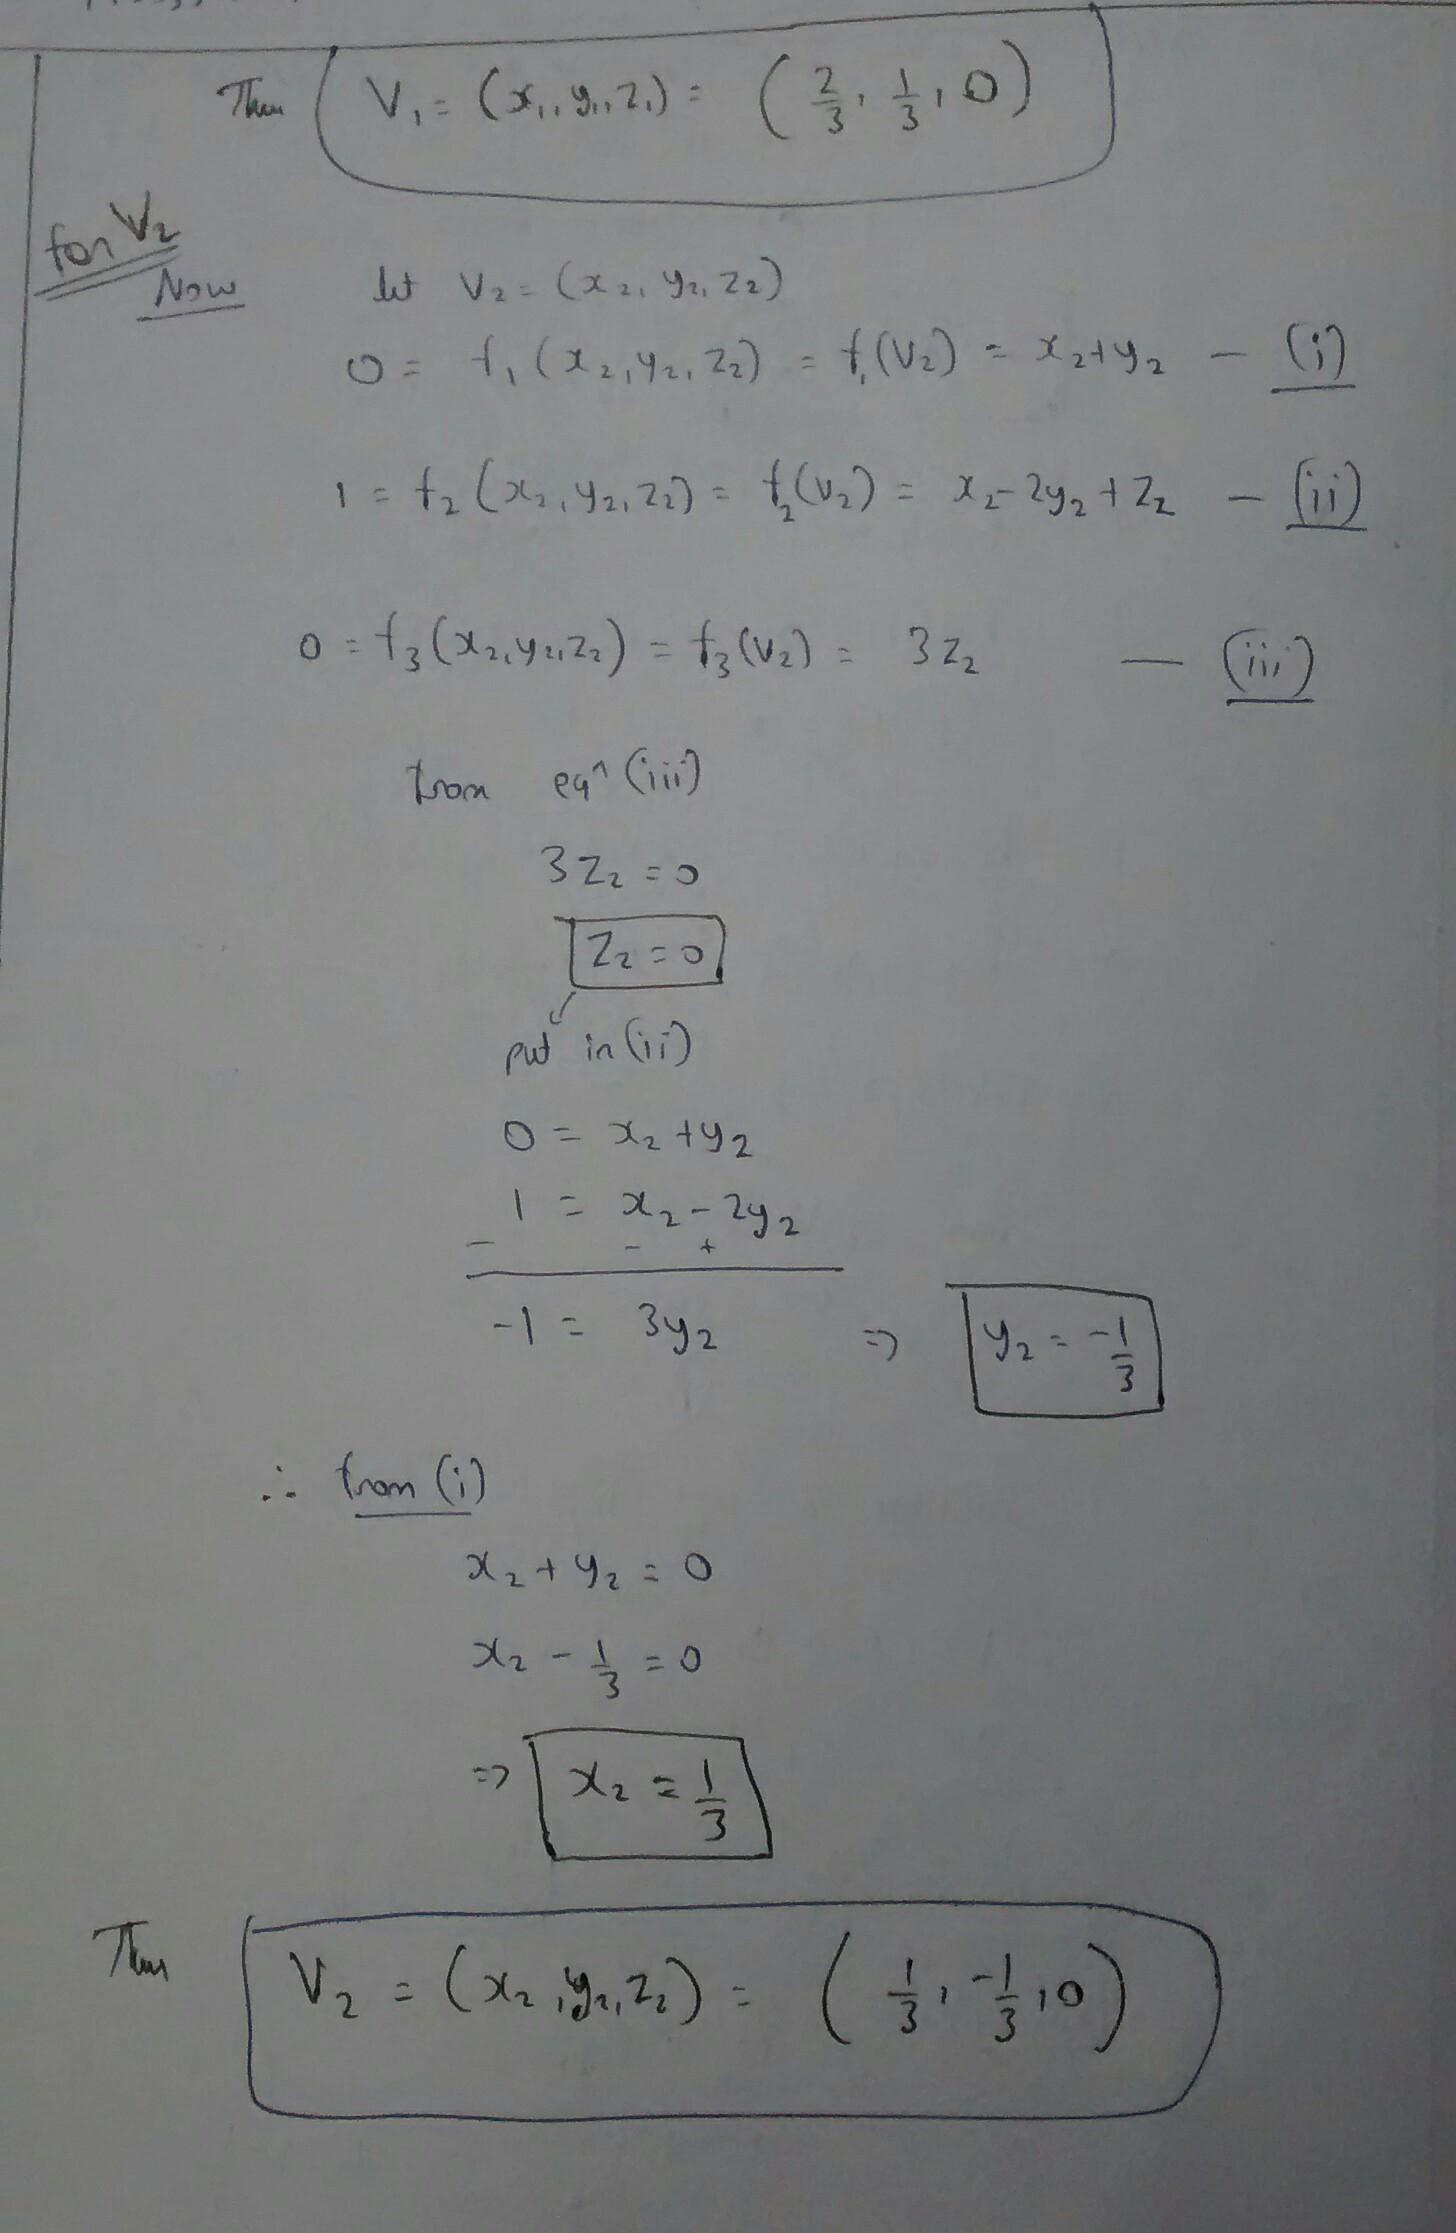 Then V₁ = (x₁, y₁, z₁) = (2/3, 1/3, 0)
for V₂
Now let V₂ = (x₂, y₂, z₂)
0 = f₁(x₂, y₂, z₂) = f₁(V₂) = x₂+y₂ — (i)
1 = f₂(x₂, y₂, z₂) = f₂(V₂) = x₂-2y₂+z₂ — (ii)
0 = f₃(x₂, y₂, z₂) = f₃(V₂) = 3z₂ — (iii)
from eqⁿ (iii)
3z₂ = 0
z₂ = 0
put in (ii)
0 = x₂+y₂
1 = x₂-2y₂
- - +
-1 = 3y₂ => y₂ = -1/3
∴ from (i)
x₂+y₂ = 0
x₂ - 1/3 = 0
=> x₂ = 1/3
Then V₂ = (x₂, y₂, z₂) = (1/3, -1/3, 0)